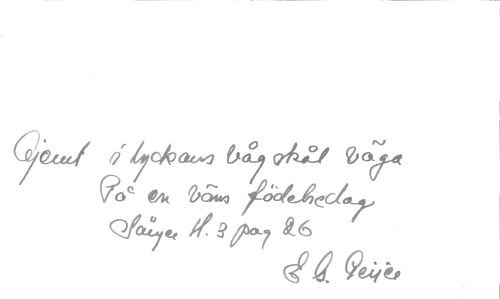 Gjemt i lyckans vågskål väga
På en väns födelsedag
Sånger H. 3 pag 26
E. G. Geijer